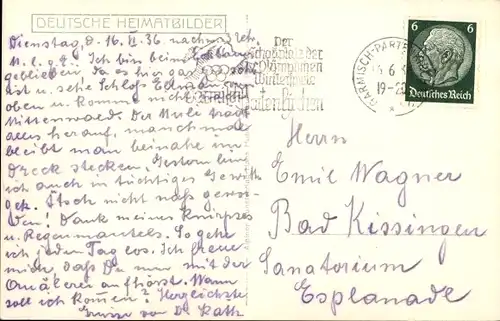 DEUTSCHE HEIMATBILDER
Dienstag, d. 16. VI. 36. nachm.
M. l. g. E. Ich bin beim
geblieben, da es hier gar
ist u. sehe Schloß
oben u. komme nicht
Mittenwald. Der Muli tragt
alles herauf, manchmal
bleibt man beinahe im
Dreck stecken. Gestern bin
ich auch in tüchtiges Gewitt
gek. Ätsch nicht naß gewor
den! Dank meines Knirpses
u. Regenmantels. So gehe
ich jeden Tag los. Ich freue
mich, daß Du nun mit der
Quälerei aufhörst. Wann
soll ich kommen? Herzlichste
Grüsse von Dr. Rath
Der
Schauplatz der
Olympischen
Winterspiele
GARMISCH-PARTENKIRCHEN
6. 3
19-20
6 6
Deutsches Reich
Herrn
Emil Wagner
Bad Kissingen
Sanatorium
Esplanade